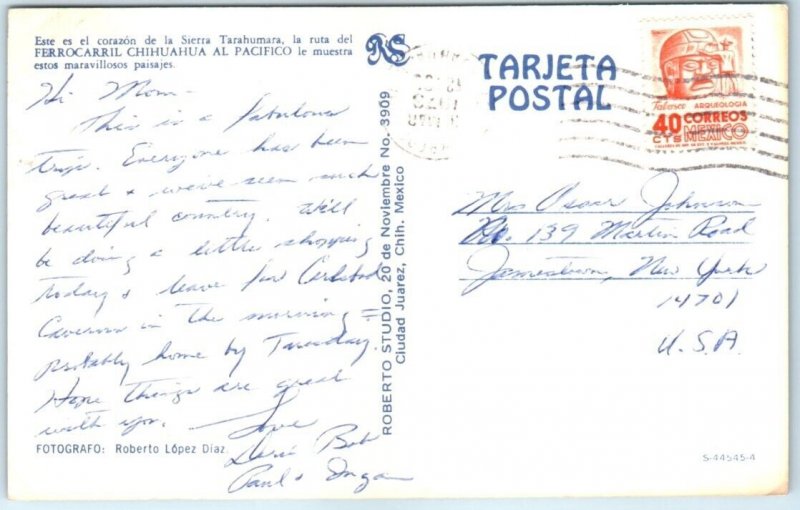 Este es el corazón de la Sierra Tarahumara, la ruta del
FERROCARRIL CHIHUAHUA AL PACIFICO le muestra
estos maravillosos paisajes.
Hi Mom -
This is a fabulous
trip. Everyone has been
great & we've seen such
beautiful country. Will
be doing a little shopping
today & leave for Carlsbad
Caverns in the morning =
probably home by Tuesday.
Hope things are great
with you. Love
Bob
Paul & Inga
FOTOGRAFO: Roberto López Díaz.
RS
ROBERTO STUDIO, 20 de Noviembre No. 3909
Ciudad Juarez, Chih. Mexico
TARJETA
POSTAL
Tabasco ARQUEOLOGIA
40 CORREOS
CTS MEXICO
Mrs Oscar Johnson
No. 139 Martin Road
Jamestown, New York
14701
U.S.A.
S-44545-4